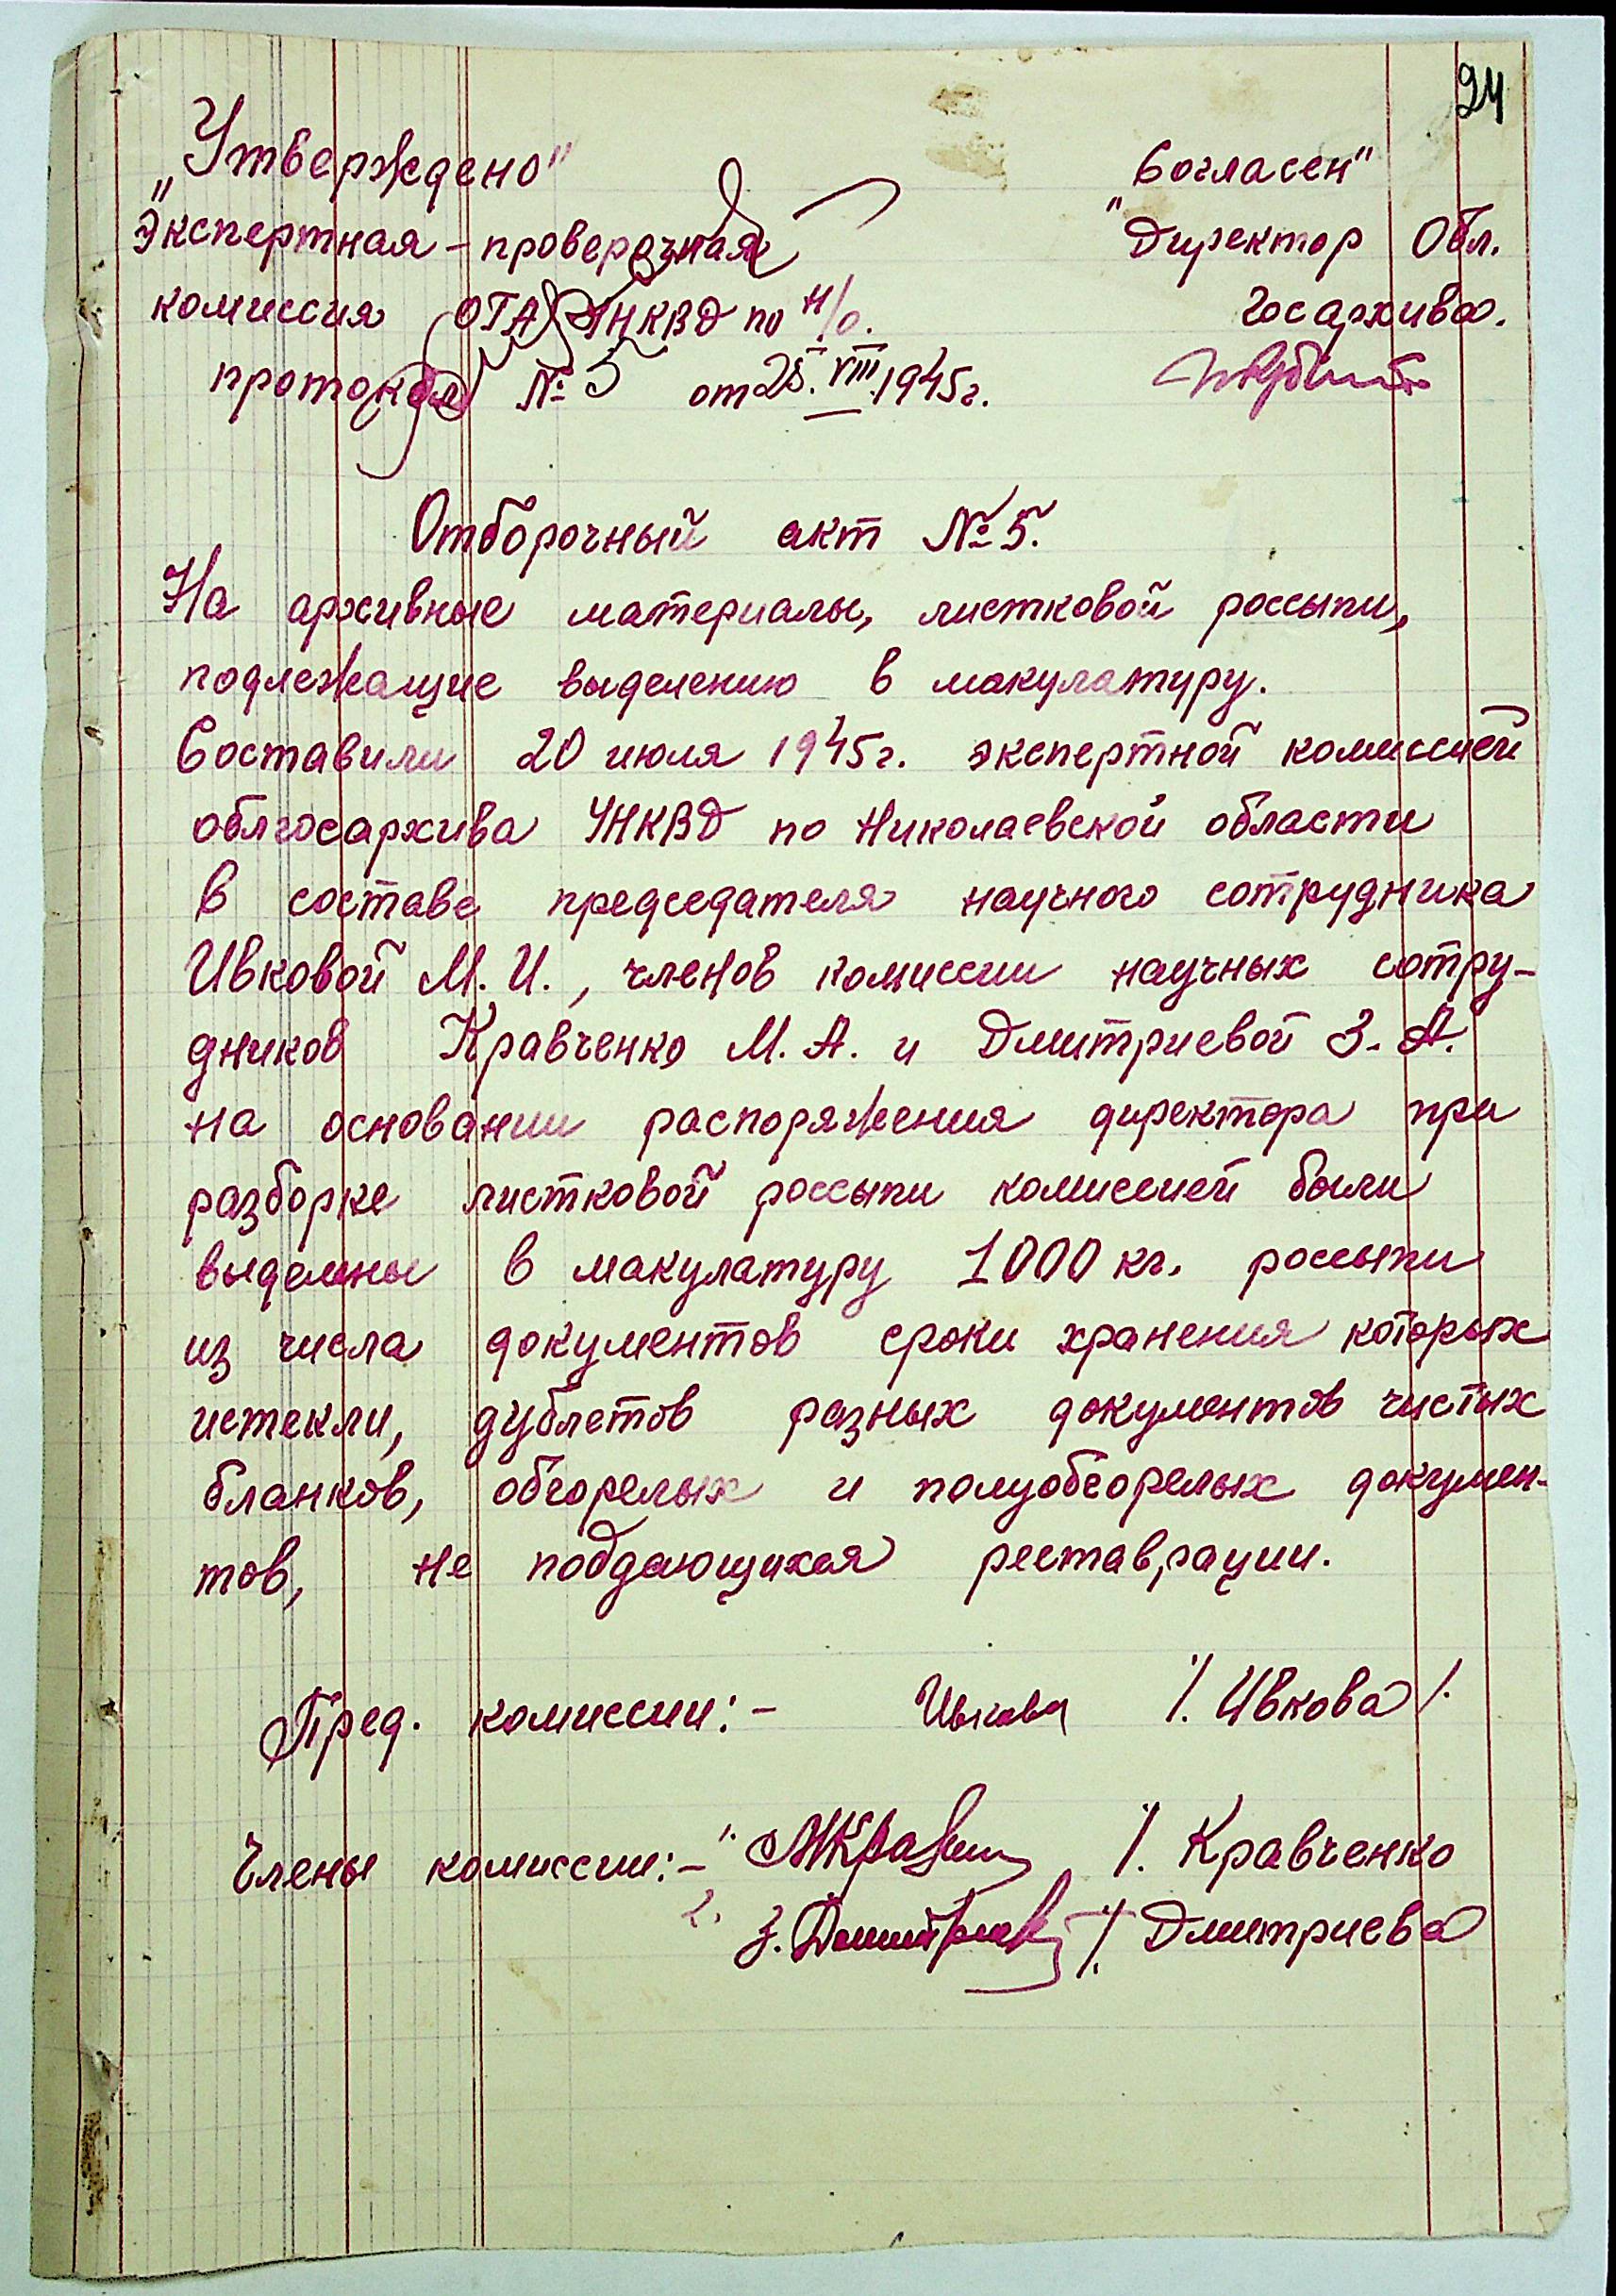 24
„Утверждено"
Экспертная - проверочная
комиссия ОГА УНКВД по Н/О.
протокол № 5 от 25.VIII.1945г.
„Согласен"
Директор Обл.
Госархива.
Отборочный акт № 5.
На архивные материалы, листковой россыпи,
подлежащие выделению в макулатуру.
Составили 20 июля 1945г. экспертной комиссией
облгосархива УНКВД по Николаевской области
в составе председателя научного сотрудника
Ивковой М. И., членов комиссии научных сотру-
дников Кравченко М. А. и Дмитриевой З. А.
на основании распоряжения директора при
разборке листковой россыпи комиссией были
выделены в макулатуру 1000 кг. россыпи
из числа документов сроки хранения которых
истекли, дублетов разных документов чистых
бланков, обгорелых и полуобгорелых докумен-
тов, не поддающихся реставрации.
Пред. комиссии: - Ивкова /. Ивкова /.
Члены комиссии: - 1. МКравченко /. Кравченко
2. З. Дмитриева /. Дмитриева